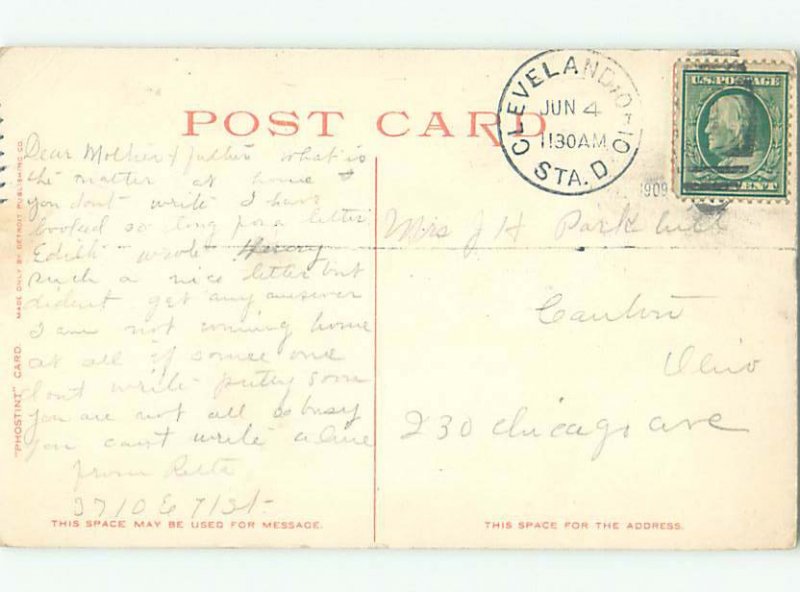 POST CARD
CLEVELAND, OHIO
JUN 4
11:30AM
STA. D.
1909
U.S. POSTAGE
CENT
Dear Mother & father what is
the matter at home
you dont write I have
looked so long for a letter
Edith wrote Harvey
such a nice letter but
dident get any answer
I am not coming home
at all if some one
dont write pretty soon
you are not all so busy
you can't write a line
from
3710 E 71 St.
Mrs J H Parkhill
Canton
Ohio
230 Chicago ave
MADE ONLY BY DETROIT PUBLISHING CO.
"PHOSTINT" CARD.
THIS SPACE MAY BE USED FOR MESSAGE.
THIS SPACE FOR THE ADDRESS.